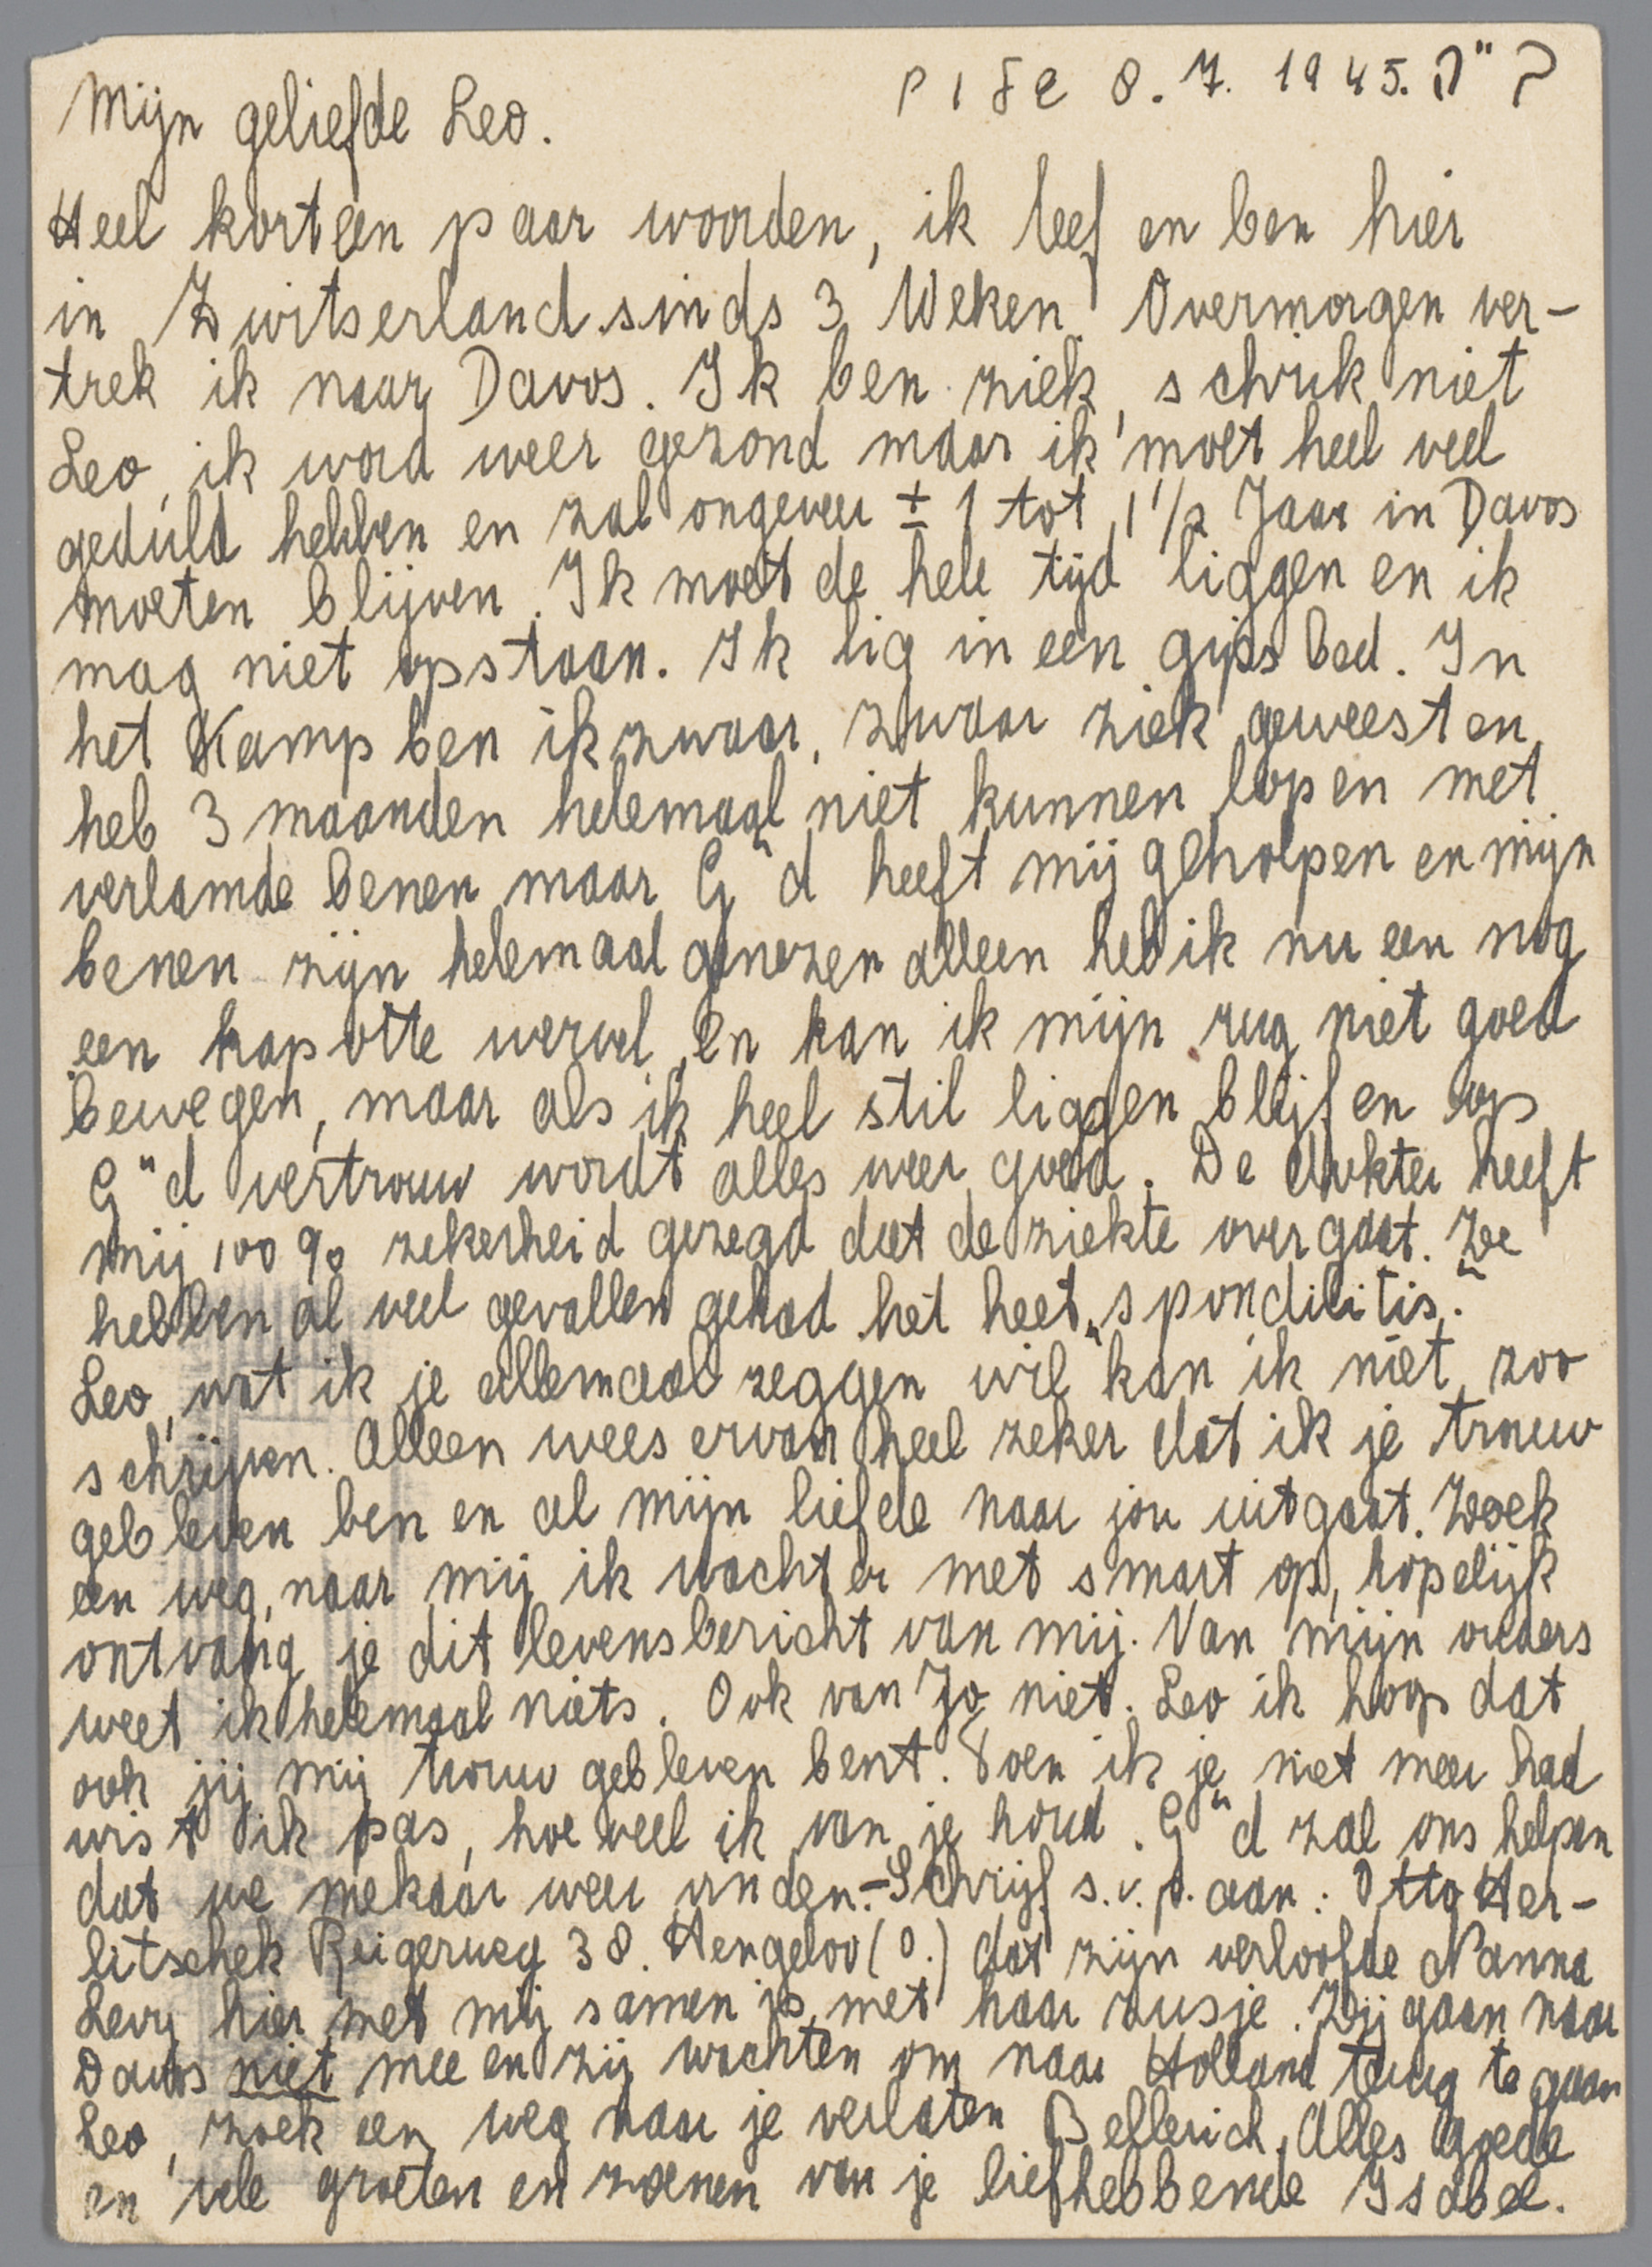 8. 7. 1945.
Mijn geliefde Leo.
Heel kort een paar woorden, ik leef en ben hier
in Zwitserland sinds 3 Weken. Overmorgen ver-
trek ik naar Davos. Ik ben ziek, schrik niet
Leo, ik word weer gezond maar ik moet heel veel
geduld hebben en zal ongeveer ± 1 tot 1 1/2 Jaar in Davos
moeten blijven. Ik moet de hele tijd liggen en ik
mag niet opstaan. Ik lig in een gips bed. In
het Kamp ben ik zwaar, zwaar ziek geweest en
heb 3 maanden helemaal niet kunnen lopen met
verlamde benen maar G"d heeft mij geholpen en mijn
benen zijn helemaal genezen alleen heb ik nu een nog
een kapotte wervel en kan ik mijn rug niet goed
bewegen, maar als ik heel stil liggen blijf en op
G"d vertrouw wordt alles weer goed. De dokter heeft
mij 100 % zekerheid gezegd dat de ziekte over gaat. Ze
hebben al veel gevallen gehad het heet „spondilitis."
Leo, wat ik je allemaal zeggen wil kan ik niet zoo
schrijven. Alleen wees ervan heel zeker dat ik je trouw
gebleven ben en al mijn liefde naar jou uitgaat. Zoek
een weg, naar mij ik wacht er met smart op, hopelijk
ontvang je dit levensbericht van mij. Van mijn ouders
weet ik helemaal niets. Ook van Jo niet. Leo ik hoop dat
ook jij mij trouw gebleven bent. Toen ik je niet meer had
wist ik pas, hoe veel ik van je houd. G"d zal ons helpen
dat we mekaar weer vinden.- Schrijf s.v.p. aan: Otto Her-
litschek Reigerweg 38. Hengeloo (O.) dat zijn verloofde Nanna
Levy hier met mij samen is, met haar zusje. Zij gaan naar
Davos niet mee en zij wachten om naar Holland terug te gaan
Leo, zoek een weg naar je verlaten Alles goede
en vele groeten en zoenen van je liefhebbende Isabel.